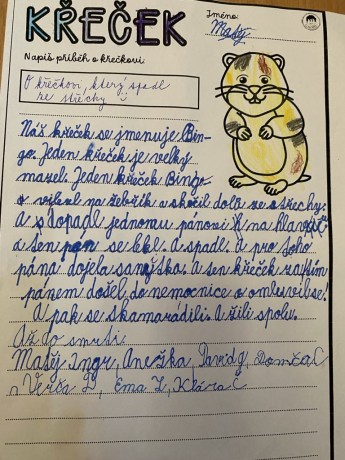 KŘEČEK
Jméno:
Matěj
Napiš příběh o křečkovi
O křečkovi, který spadl
ze střechy
Náš křeček se jmenuje Bin-
go. Jeden křeček je velký
mazel. Jeden křeček Bingo-
vylezl na žebřík a skočil dolů ze střechy.
a jednomu pánovi na hlavu
a ten pan se lekl. A spadl. A pro toho
pána dojela sanytka. A ten křeček za tím
pánem došel do nemocnice a omluvil se!
A pak se skamarádili. A žili spolu.
Až do smrti.
Matěj, Ingr, Anežka, David g, C
Verča D, Ema Z, Klára C